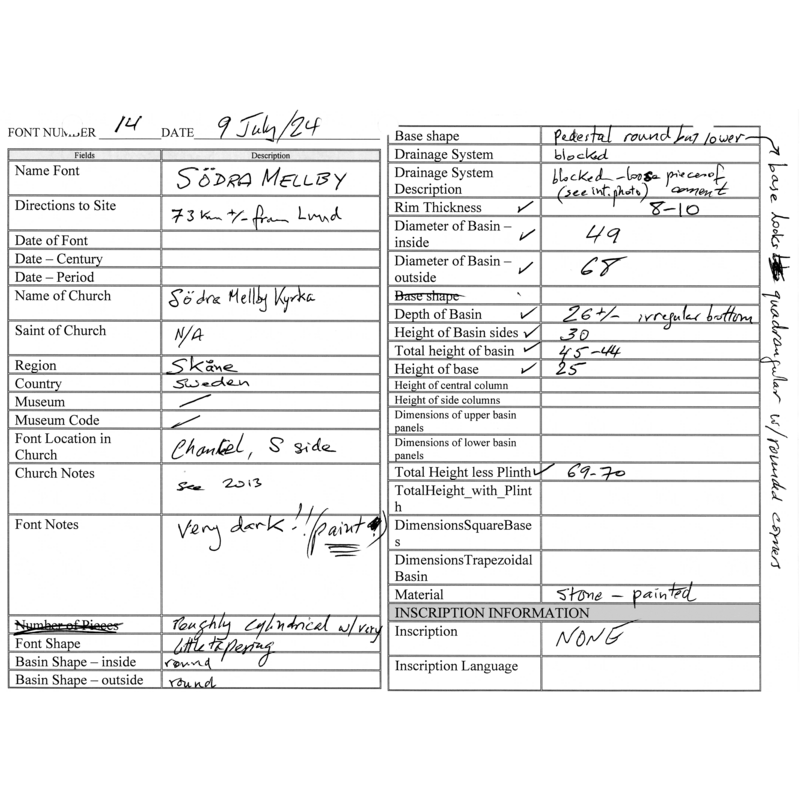 FONT NUMBER 14 DATE 9 July/24
Fields Description
Name Font SÖDRA MELLBY
Directions to Site 73 Km +/- from Lund
Date of Font
Date – Century
Date – Period
Name of Church Södra Mellby Kyrka
Saint of Church N/A
Region Skåne
Country Sweden
Museum —
Museum Code —
Font Location in
Church Chancel, S side
Church Notes see 2013
Font Notes Very dark!!! (paint?)
Number of Pieces roughly cylindrical w/very
Font Shape little tapering
Basin Shape – inside round
Basin Shape – outside round
Base shape Pedestal round but lower → base looks quadrangular w/rounded corners
Drainage System blocked
Drainage System blocked – loose pieces of
Description (see int. photo) cement
Rim Thickness ✓ 8–10
Diameter of Basin –
inside ✓ 49
Diameter of Basin –
outside ✓ 68
Base shape
Depth of Basin ✓ 26 +/- irregular bottom
Height of Basin sides ✓ 30
Total height of basin ✓ 45–44
Height of base ✓ 25
Height of central column
Height of side columns
Dimensions of upper basin
panels
Dimensions of lower basin
panels
Total Height less Plinth ✓ 69–70
TotalHeight_with_Plint
h
DimensionsSquareBase
s
DimensionsTrapezoidal
Basin
Material Stone – painted
INSCRIPTION INFORMATION
Inscription NONE
Inscription Language